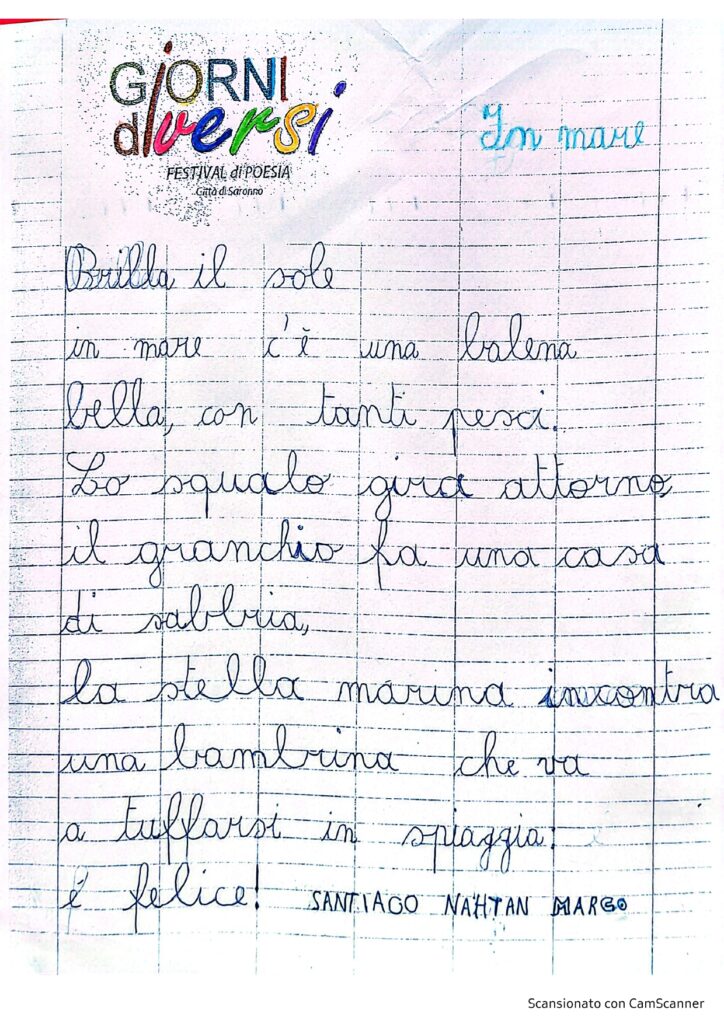 GiORNI
diversi
FESTIVAL di POESIA
Città di Saronno
In mare
Brilla il sole
in mare c'è una balena
bella, con tanti pesci.
Lo squalo gira attorno,
il granchio fa una casa
di sabbia,
la stella marina incontra
una bambina che va
a tuffarsi in spiaggia:
è felice! SANTIAGO NAHTAN MARGO
Scansionato con CamScanner